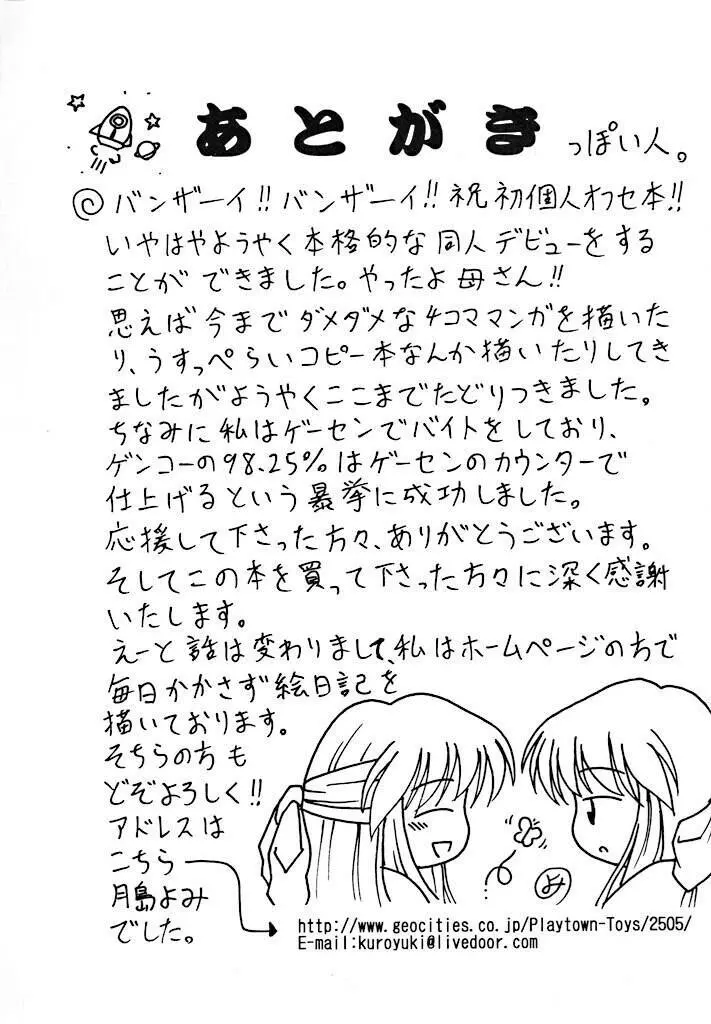 あとがきっぽい人。
◎バンザーイ!!バンザーイ!!祝初個人オフセ本!!
いやはやようやく本格的な同人デビューをする
ことができました。やったよ母さん!!
思えば今までダメダメな4コママンガを描いた
り、うすっぺらいコピー本なんか描いたりしてき
ましたがようやくここまでたどりつきました。
ちなみに私はゲーセンでバイトをしており、
ゲンコーの98.25%はゲーセンのカウンターで
仕上げるという暴挙に成功しました。
応援して下さった方々、ありがとうございます。
そしてこの本を買って下さった方々に深く感謝
いたします。
えーと話は変わりまして、私はホームページの方で
毎日かかさず絵日記を
描いております。
そちらの方も
どぞよろしく!!
アドレスは
こちら
月島よみ
でした。
よみ
http://www.geocities.co.jp/Playtown-Toys/2505/
E-mail:kuroyuki@livedoor.com